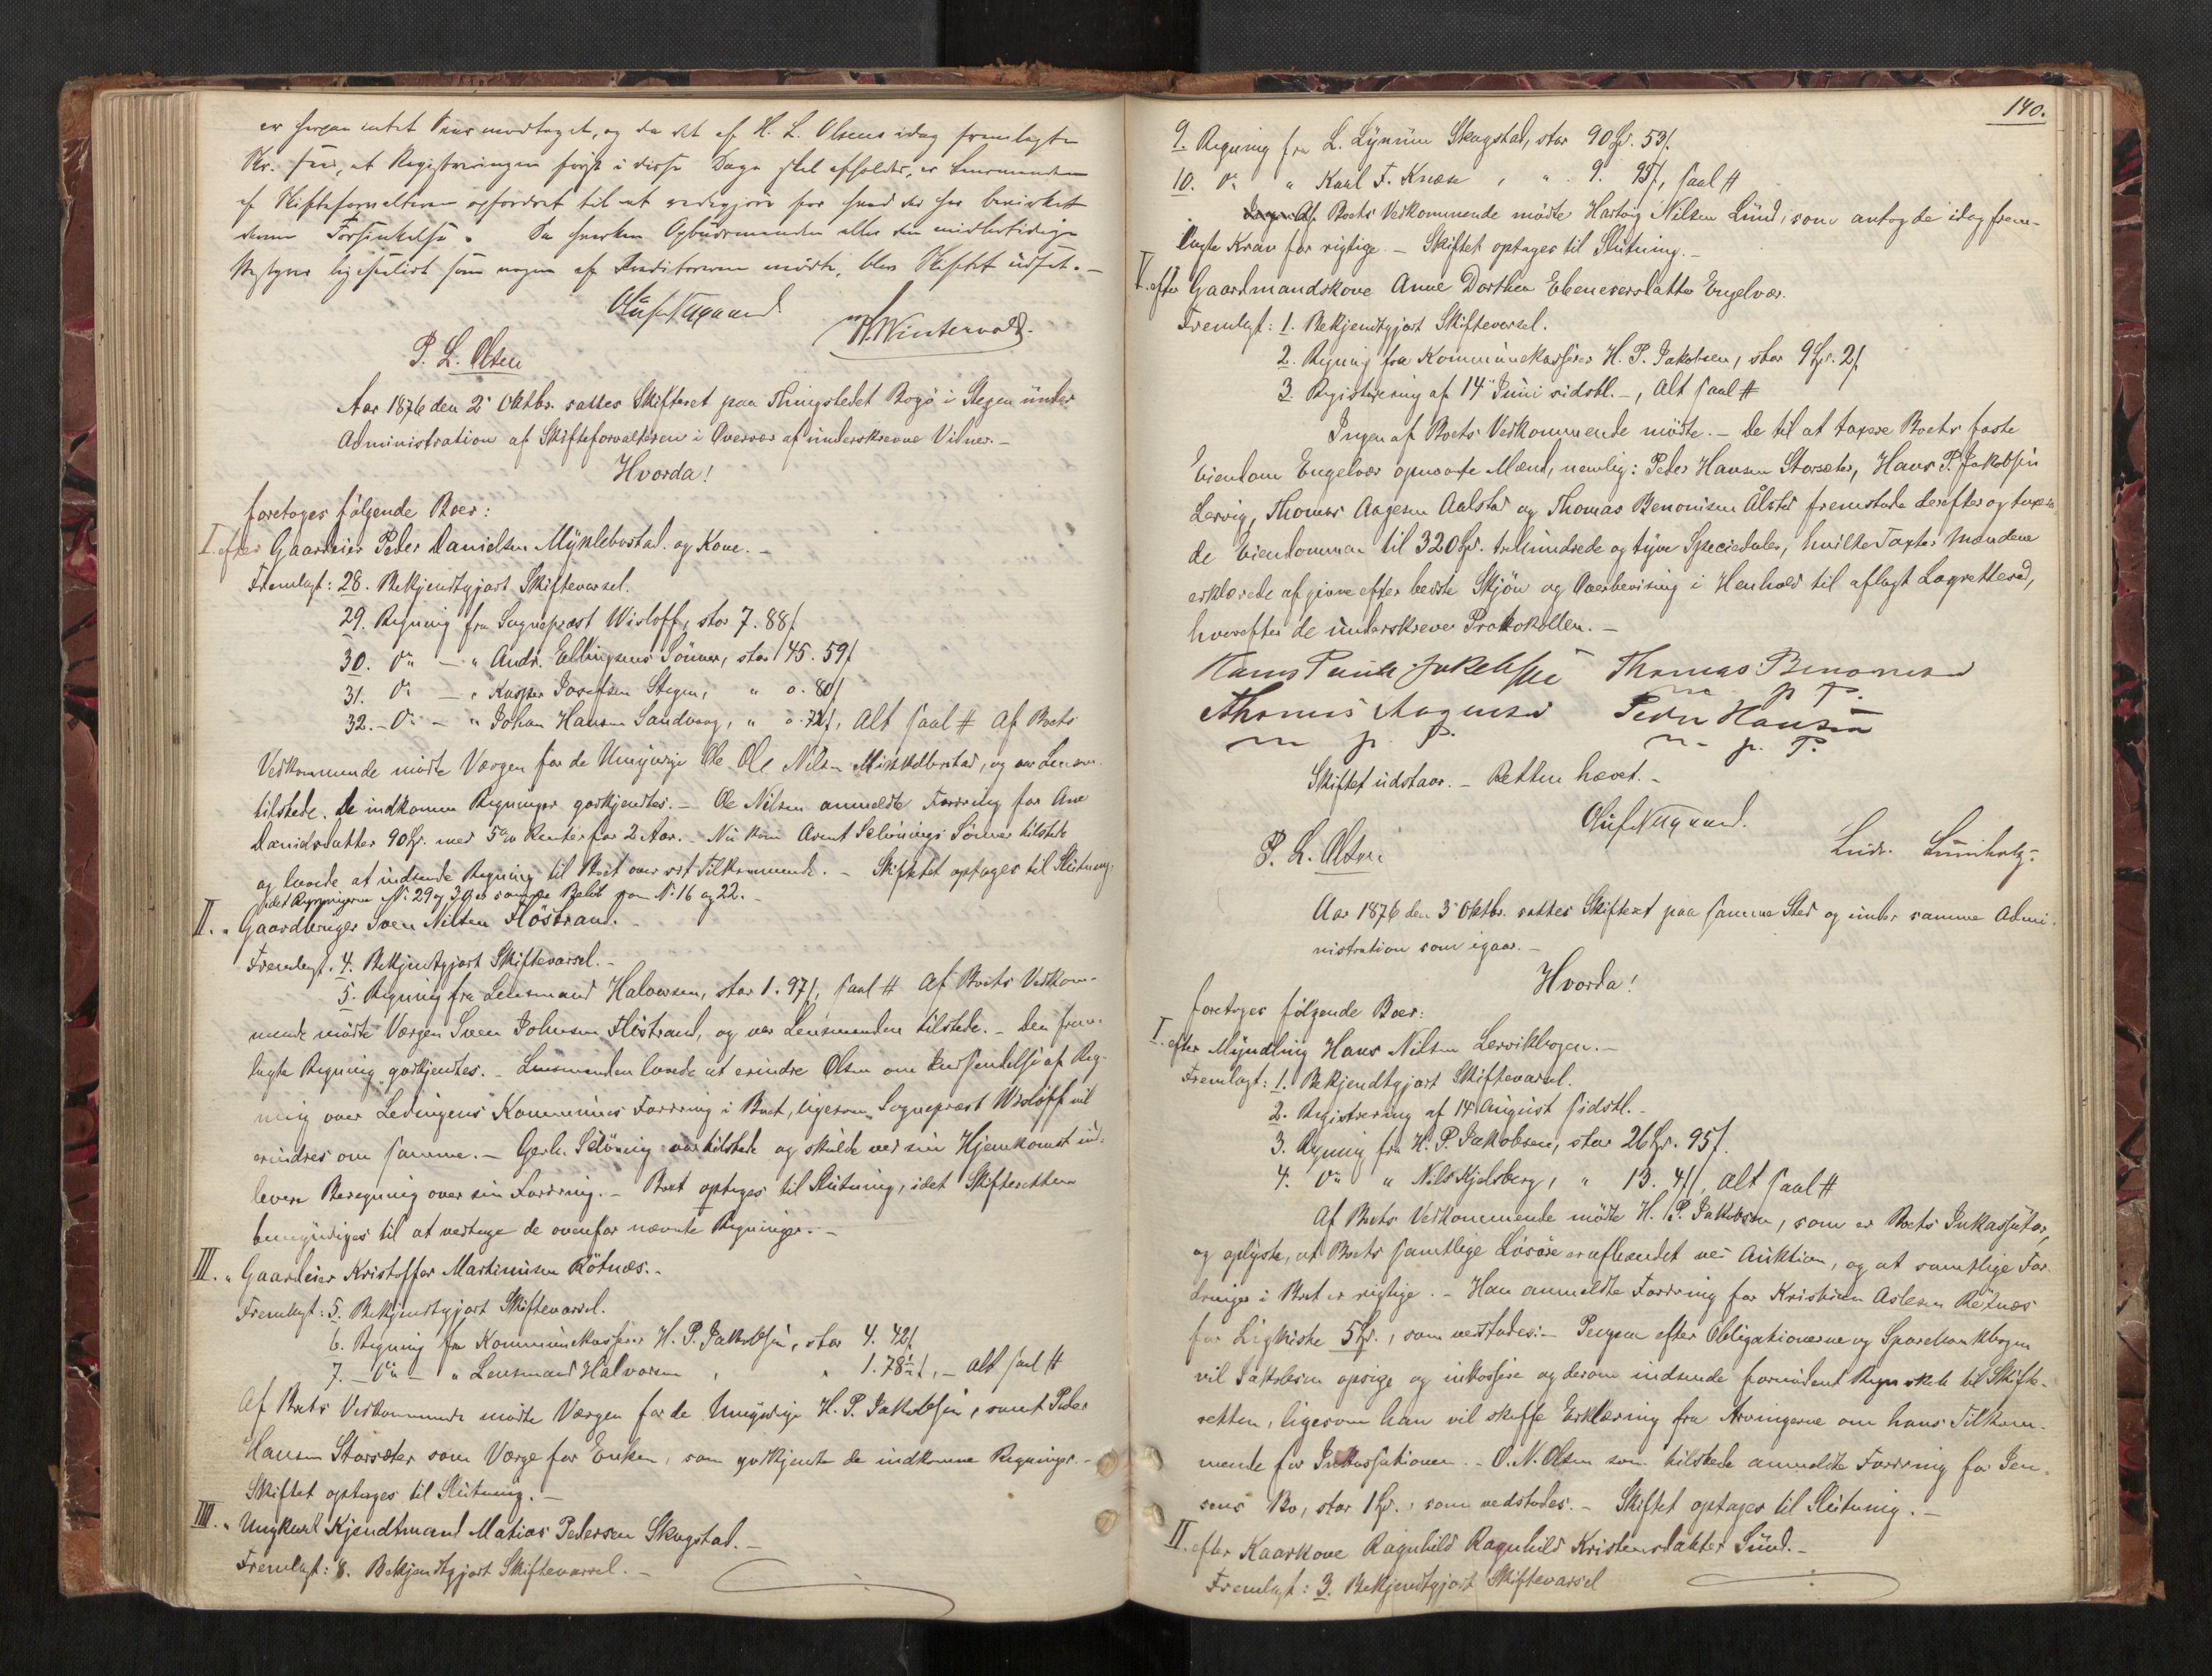 er herpaa intet Svar modtaget, og da det af H. L. Olsens idag fremlagte
Kv. sees, at Registreringen først i disse Dage skal afholdes, er Lensmanden
af Skifteforvalteren opfordret til at redegjøre for hvad der har bevirket
denne Forsinkelse. Da hverken Ogbudsmanden eller den midlertidige
ligesaalidt som nogen af Kreditorerne mödte, blev Skiftet udsat. —
P. L. Olsen
Aar 1876 den 2. Oktbr. sattes Skifteret paa Thingstedet Bogö i Stegen under
Administration af Skifteforvalteren i Overvær af underskrevne Vidner. —
Hvorda!
foretoges følgende Boer:
I. efter Gaardeier Peder Danielsen Myklebostad og Kone. —
Fremlagt: 28. Bekjendtgjort Skiftevarsel.
29. Regning fra Sognepræst Wisloff, stor 7. 88 ſ
30. Do — " Andr. Ellingsens Sönner, stor 145. 59 ſ
31. Do — " Kasper Josefsen Stegen, " 0. 80 ſ
32. — Do — " Johan Hansen Sandvaag, " 0. 72 ſ, Alt saal # Af Boets
Vedkommende mödte Værgen for de Umyndige Ole Nilsen Mikkelbostad, og var Lensm.
tilstede. De indkomne Regninger godkjendtes. — Ole Nilsen anmeldte Fordring for Ane
Danielsdatter 90 Spd. med 5% Renter for 2 Aar. — Nu kom Arent Schönings Sönner tilstede
og lovede at indsende Regning til Boet over sit Tilkommende. — Skiftet optages til Slutning,
idet Regningerne No 29 og 30 er samme Beløb som No 16 og 22. —
II. " Gaardbruger Sven Nilsen Flöstrand. —
Fremlagt. 4. Bekjendtgjort Skiftevarsel. —
5. Regning fra Lensmand Halvorsen, stor 1. 97 ſ, saal # Af Boets Vedkom-
mende mödte Værgen Sven Johnsen Flöstrand, og var Lensmanden tilstede. — Den frem-
lagte Regning godkjendtes. — Lensmanden lovede at erindre Olsen om Indsendelse af Reg-
ning over Ledingens Kommunes Fordring i Boet, ligesom Sognepræst Wisloff vil
erindres om samme. — Gerh. Schöning var tilstede og skulde ved sin Hjemkomst ind-
levere Beregning over sin Fordring. — Boet optages til Slutning, idet Skifteretten
bemyndiges til at vedtage de ovenfor nævnte Regninger. —
III. " Gaardeier Kristoffer Martinusen Rötnæs. —
Fremlagt: 5. Bekjendtgjort Skiftevarsel.
6. Regning fra Kommunekasserer H. P. Jakobsen, stor 4. 42 ſ
7. — Do — " Lensmand Halvorsen , " 1. 78½ ſ, — alt saal #
Af Boets Vedkommende mödte Værgen for de Umyndige H. P. Jakobsen, samt Peder
Hansen Storsæter som Værge for Enken, som godkjendte de indkomne Regninger. —
Skiftet optages til Slutning. —
IIII. " Ungkarl Kjendtmand Matias Pedersen Skogstad. —
Fremlagt: 8. Bekjendtgjort Skiftevarsel. —
140.
9. Regning fra L. Lynum Skogstad, stor 90 Spd. 53 ſ.
10. Do " Karl F. Knæse , " 9. 95 ſ, saal #
Af Boets Vedkommende mödte Hartvig Nilsen Lund, som antog de idag frem-
lagte Krav for rigtige. — Skiftet optages til Slutning. —
V. efter Gaardmandskone Anne Dorthea Ebenesersdatter Engelvær.
Fremlagt: 1. Bekjendtgjort Skiftevarsel.
2. Regning fra Kommunekasserer H. P. Jakobsen, stor 9 Spd. 2 ſ
3. Registrering af 14 Juni sidstl. —, Alt saal #
Ingen af Boets Vedkommende mödte. — De til at taxere Boets faste
Eiendom Engelvær opnævnte Mænd, nemlig: Peder Hansen Storsæter, Hans P. Jakobsen
Lervig, Thomas Aagesen Aalstad og Thomas Benonisen Ålstad fremstode derefter og taxere-
de Eiendommen til 320 Spd. trehundrede og tyve Speciedaler, hvilke Taxter Mændene
erklærede afgivne efter bedste Skjön og Overbevisning i Henhold til aflagt Lagretteed,
hvorefter de underskrev Protokollen. —
Hans Peder Jakobsen Thomas Benonisen
m p. P.
Thomas Aagesen Peder Hansen
m p. P. m. p. P.
Skiftet udstaar. — Retten hævet. —
P. L. Olsen
Aar 1876 den 3. Oktbr. sattes Skifteret paa samme Sted og under samme Admi-
nistration som igaar. —
Hvorda!
foretoges følgende Boer:
I. efter Myndling Hans Nilsen Lervikbogen. —
Fremlagt: 1. Bekjendtgjort Skiftevarsel.
2. Registrering af 14 August sidstl. —
3. Regning fra H. P. Jakobsen, stor 26 Spd. 95 ſ.
4. Do " Nils Kjelsberg, " 13. 41 ſ, alt saal #
Af Boets Vedkommende mödte H. P. Jakobsen, som er Boets Inkassator,
og oplyste, at Boets samtlige Lösöre er afhændet ved Auktion, og at samtlige For-
dringer i Boet er rigtige. — Han anmeldte Fordring for Kristian Aslesen Rötnæs
for Ligkiste 5 Spd., som vedtoges. — Pengene efter Obligationerne og Sparebankbogen
vil Jakobsen opsige og inkassere og derom indsende fornödent Regnskab til Skifte-
retten, ligesom han vil skaffe Erklæring fra Arvingerne om hans Tilkom-
mende for Inkassationen. — O. N. Olsen som tilstede anmeldte Fordring for Jen-
sens Bo, stor 1 Spd., som vedtoges. — Skiftet optages til Slutning. —
II. efter Kaarkone Ragnhild Ragnhild Kristensdatter Sund. —
Fremlagt: 3. Bekjendtgjort Skiftevarsel